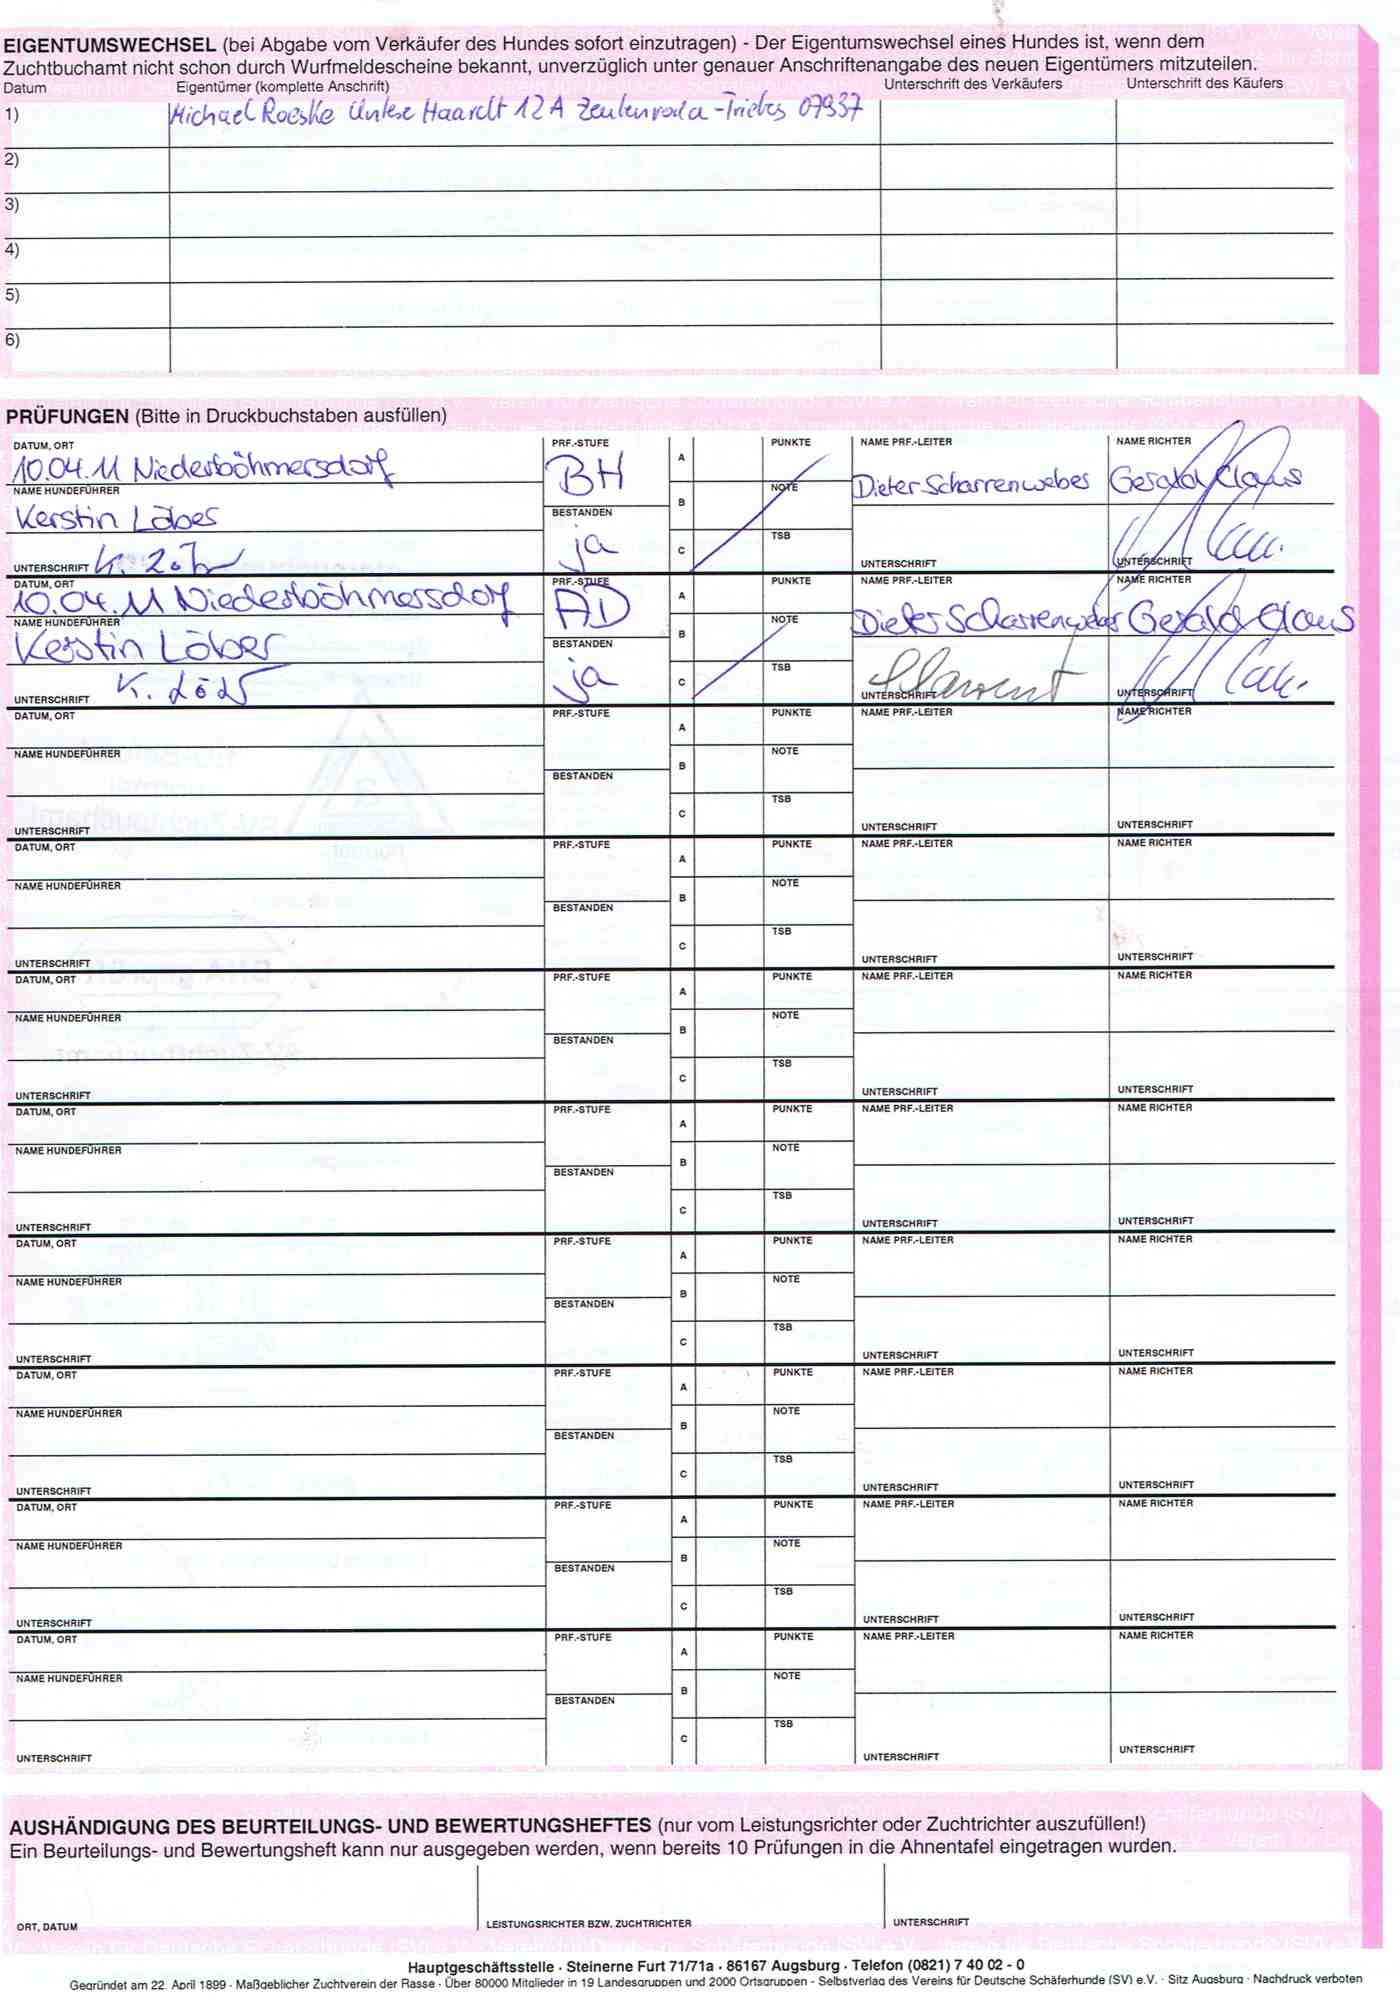 EIGENTUMSWECHSEL (bei Abgabe vom Verkäufer des Hundes sofort einzutragen) - Der Eigentumswechsel eines Hundes ist, wenn dem
Zuchtbuchamt nicht schon durch Wurfmeldescheine bekannt, unverzüglich unter genauer Anschriftenangabe des neuen Eigentümers mitzuteilen.
Datum Eigentümer (komplette Anschrift) Unterschrift des Verkäufers Unterschrift des Käufers
1) Michael Roeske Untere Haardt 12A Zeulenroda-Triebes 07937
2)
3)
4)
5)
6)
PRÜFUNGEN (Bitte in Druckbuchstaben ausfüllen)
DATUM, ORT PRF.-STUFE A PUNKTE NAME PRF.-LEITER NAME RICHTER
10.04.11 Niederböhmersdorf BH Dieter Scharrenweber Gerald Claus
NAME HUNDEFÜHRER B NOTE
Kerstin Löber BESTANDEN
ja C TSB
UNTERSCHRIFT UNTERSCHRIFT UNTERSCHRIFT
DATUM, ORT PRF.-STUFE A PUNKTE NAME PRF.-LEITER NAME RICHTER
10.04.11 Niederböhmersdorf AD Dieter Scharrenweber Gerald Claus
NAME HUNDEFÜHRER B NOTE
Kerstin Löber BESTANDEN
ja C TSB
UNTERSCHRIFT UNTERSCHRIFT UNTERSCHRIFT
DATUM, ORT PRF.-STUFE A PUNKTE NAME PRF.-LEITER NAME RICHTER
NAME HUNDEFÜHRER B NOTE
BESTANDEN
C TSB
UNTERSCHRIFT UNTERSCHRIFT UNTERSCHRIFT
DATUM, ORT PRF.-STUFE A PUNKTE NAME PRF.-LEITER NAME RICHTER
NAME HUNDEFÜHRER B NOTE
BESTANDEN
C TSB
UNTERSCHRIFT UNTERSCHRIFT UNTERSCHRIFT
DATUM, ORT PRF.-STUFE A PUNKTE NAME PRF.-LEITER NAME RICHTER
NAME HUNDEFÜHRER B NOTE
BESTANDEN
C TSB
UNTERSCHRIFT UNTERSCHRIFT UNTERSCHRIFT
DATUM, ORT PRF.-STUFE A PUNKTE NAME PRF.-LEITER NAME RICHTER
NAME HUNDEFÜHRER B NOTE
BESTANDEN
C TSB
UNTERSCHRIFT UNTERSCHRIFT UNTERSCHRIFT
DATUM, ORT PRF.-STUFE A PUNKTE NAME PRF.-LEITER NAME RICHTER
NAME HUNDEFÜHRER B NOTE
BESTANDEN
C TSB
UNTERSCHRIFT UNTERSCHRIFT UNTERSCHRIFT
DATUM, ORT PRF.-STUFE A PUNKTE NAME PRF.-LEITER NAME RICHTER
NAME HUNDEFÜHRER B NOTE
BESTANDEN
C TSB
UNTERSCHRIFT UNTERSCHRIFT UNTERSCHRIFT
DATUM, ORT PRF.-STUFE A PUNKTE NAME PRF.-LEITER NAME RICHTER
NAME HUNDEFÜHRER B NOTE
BESTANDEN
C TSB
UNTERSCHRIFT UNTERSCHRIFT UNTERSCHRIFT
DATUM, ORT PRF.-STUFE A PUNKTE NAME PRF.-LEITER NAME RICHTER
NAME HUNDEFÜHRER B NOTE
BESTANDEN
C TSB
UNTERSCHRIFT UNTERSCHRIFT UNTERSCHRIFT
AUSHÄNDIGUNG DES BEURTEILUNGS- UND BEWERTUNGSHEFTES (nur vom Leistungsrichter oder Zuchtrichter auszufüllen!)
Ein Beurteilungs- und Bewertungsheft kann nur ausgegeben werden, wenn bereits 10 Prüfungen in die Ahnentafel eingetragen wurden.
ORT, DATUM LEISTUNGSRICHTER BZW. ZUCHTRICHTER UNTERSCHRIFT
Hauptgeschäftsstelle · Steinerne Furt 71/71a · 86167 Augsburg · Telefon (0821) 7 40 02 - 0
Gegründet am 22. April 1899 · Maßgeblicher Zuchtverein der Rasse · Über 80000 Mitglieder in 19 Landesgruppen und 2000 Ortsgruppen - Selbstverlag des Vereins für Deutsche Schäferhunde (SV) e.V. · Sitz Augsburg · Nachdruck verboten